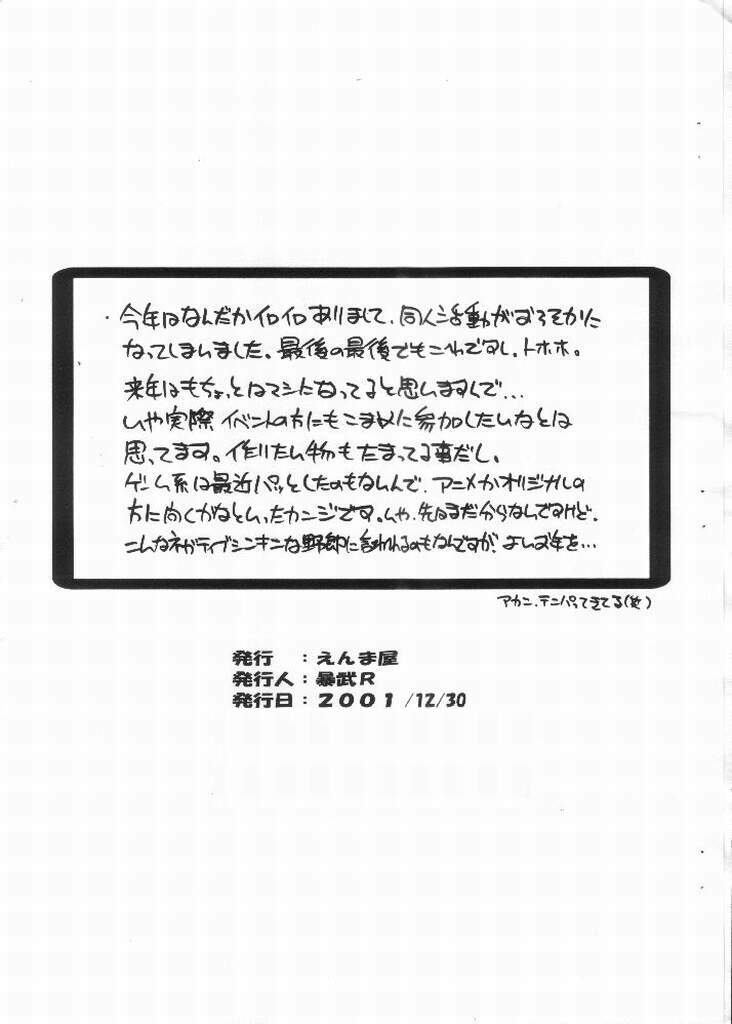 ・今年はなんだかイロイロありまして、同人活動がおろそかに
なってしまいました。最後の最後でもこれですし。トホホ。
来年はもちょっとはマシになってると思いますんで…
いや実際イベントの方にもこまめに参加したいなとは
思ってます。作りたい物もたまってる事だし。
ゲーム系は最近パッとしたのもないんで、アニメかオリジナルの
方に向くかなといったカンジです。いや、先はまだ分からないですけど。
こんなネガティブシンキンな野郎に言われるのもなんですが、よいお年を…
アカン、テンパってきてる
発行　：えんま屋
発行人：暴武R
発行日：2001/12/30